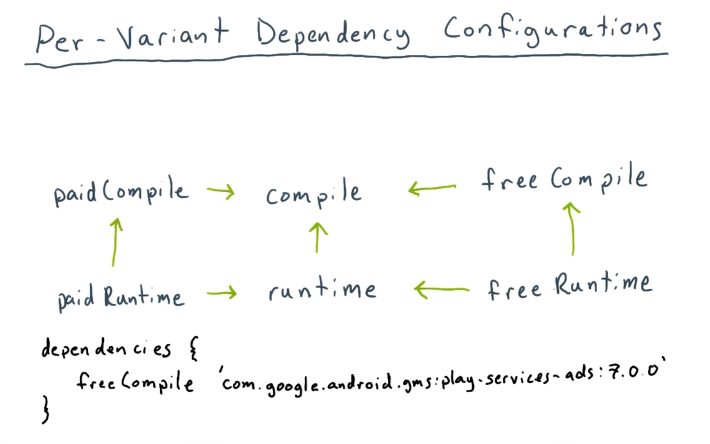 Per-Variant Dependency Configurations
paidCompile → compile ← freeCompile
paidRuntime → runtime ← freeRuntime
dependencies {
freeCompile 'com.google.android.gms:play-services-ads:7.0.0'
}